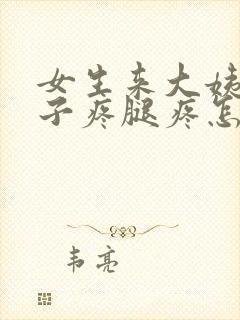 女生来大姨
子疼腿疼怎
韦亮